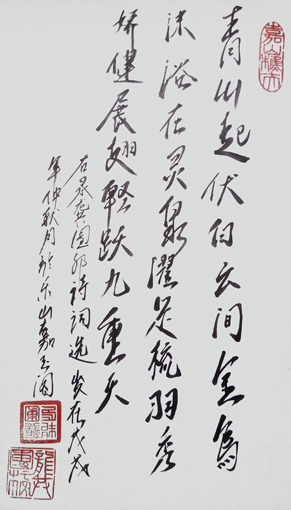 青山起伏白云间金乌
沐浴在灵泉濯足梳羽秀
娇健展翅轻跃九重天
右录龚国邦诗词选岁在戊戌
年仲秋月于乐山嘉玉阁